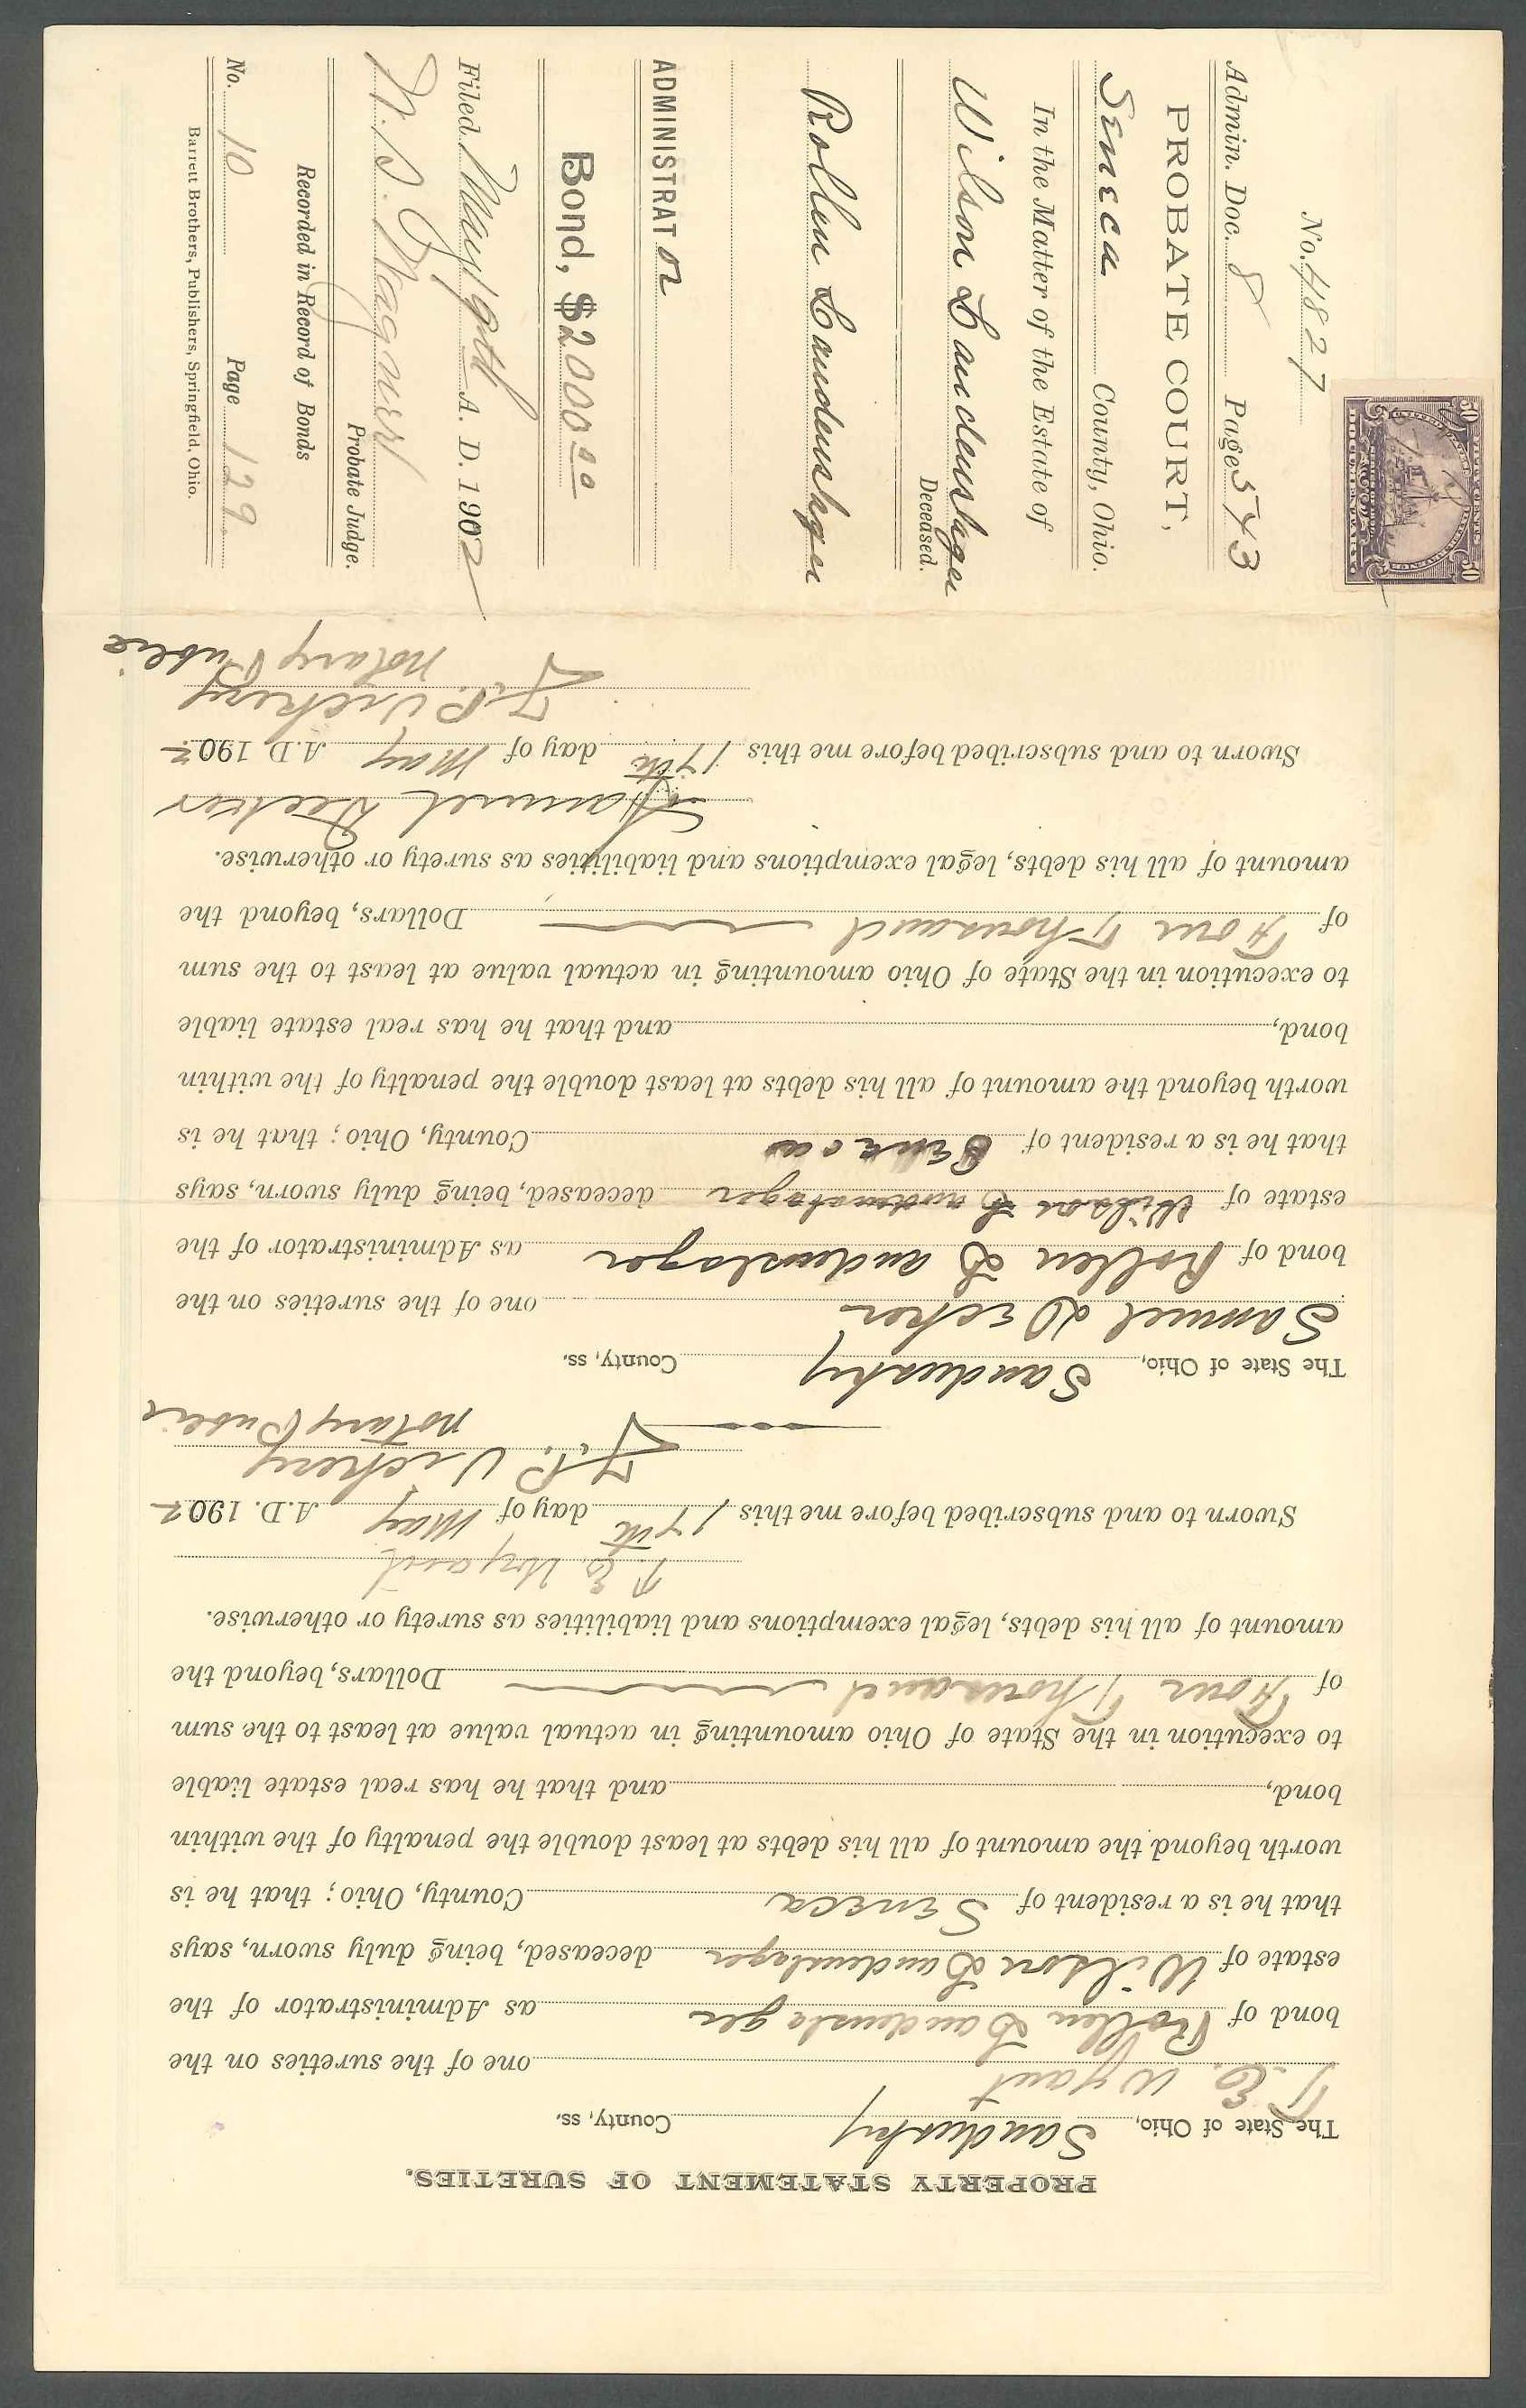 No. 4827
Admin. Doc. 8 Page 543
PROBATE COURT,
Seneca County, Ohio.
In the Matter of the Estate of
Wilson Laudenslager
Deceased.
Rollen Laudenslager
ADMINISTRAT or
Bond, $2000 00
Filed May 19th A. D. 1902
Probate Judge.
Recorded in Record of Bonds
No. 10 Page 129
Barrett Brothers, Publishers, Springfield, Ohio.
PROPERTY STATEMENT OF SURETIES.
The State of Ohio, Sandusky County, ss.
T. E. Wyant one of the sureties on the
bond of Rollen Laudenslager as Administrator of the
estate of Wilson Laudenslager deceased, being duly sworn, says
that he is a resident of Seneca County, Ohio; that he is
worth beyond the amount of all his debts at least double the penalty of the within
bond, and that he has real estate liable
to execution in the State of Ohio amounting in actual value at least to the sum
of Four Thousand Dollars, beyond the
amount of all his debts, legal exemptions and liabilities as surety or otherwise.
T. E. Wyant
Sworn to and subscribed before me this 17th day of May A.D. 1902
F. P. Vickery
Notary Public
The State of Ohio, Sandusky County, ss.
Samuel Decker one of the sureties on the
bond of Rollen Laudenslager as Administrator of the
estate of Wilson Laudenslager deceased, being duly sworn, says
that he is a resident of Seneca County, Ohio; that he is
worth beyond the amount of all his debts at least double the penalty of the within
bond, and that he has real estate liable
to execution in the State of Ohio amounting in actual value at least to the sum
of Four Thousand Dollars, beyond the
amount of all his debts, legal exemptions and liabilities as surety or otherwise.
Samuel Decker
Sworn to and subscribed before me this 17th day of May A.D. 1902
F. P. Vickery
Notary Public